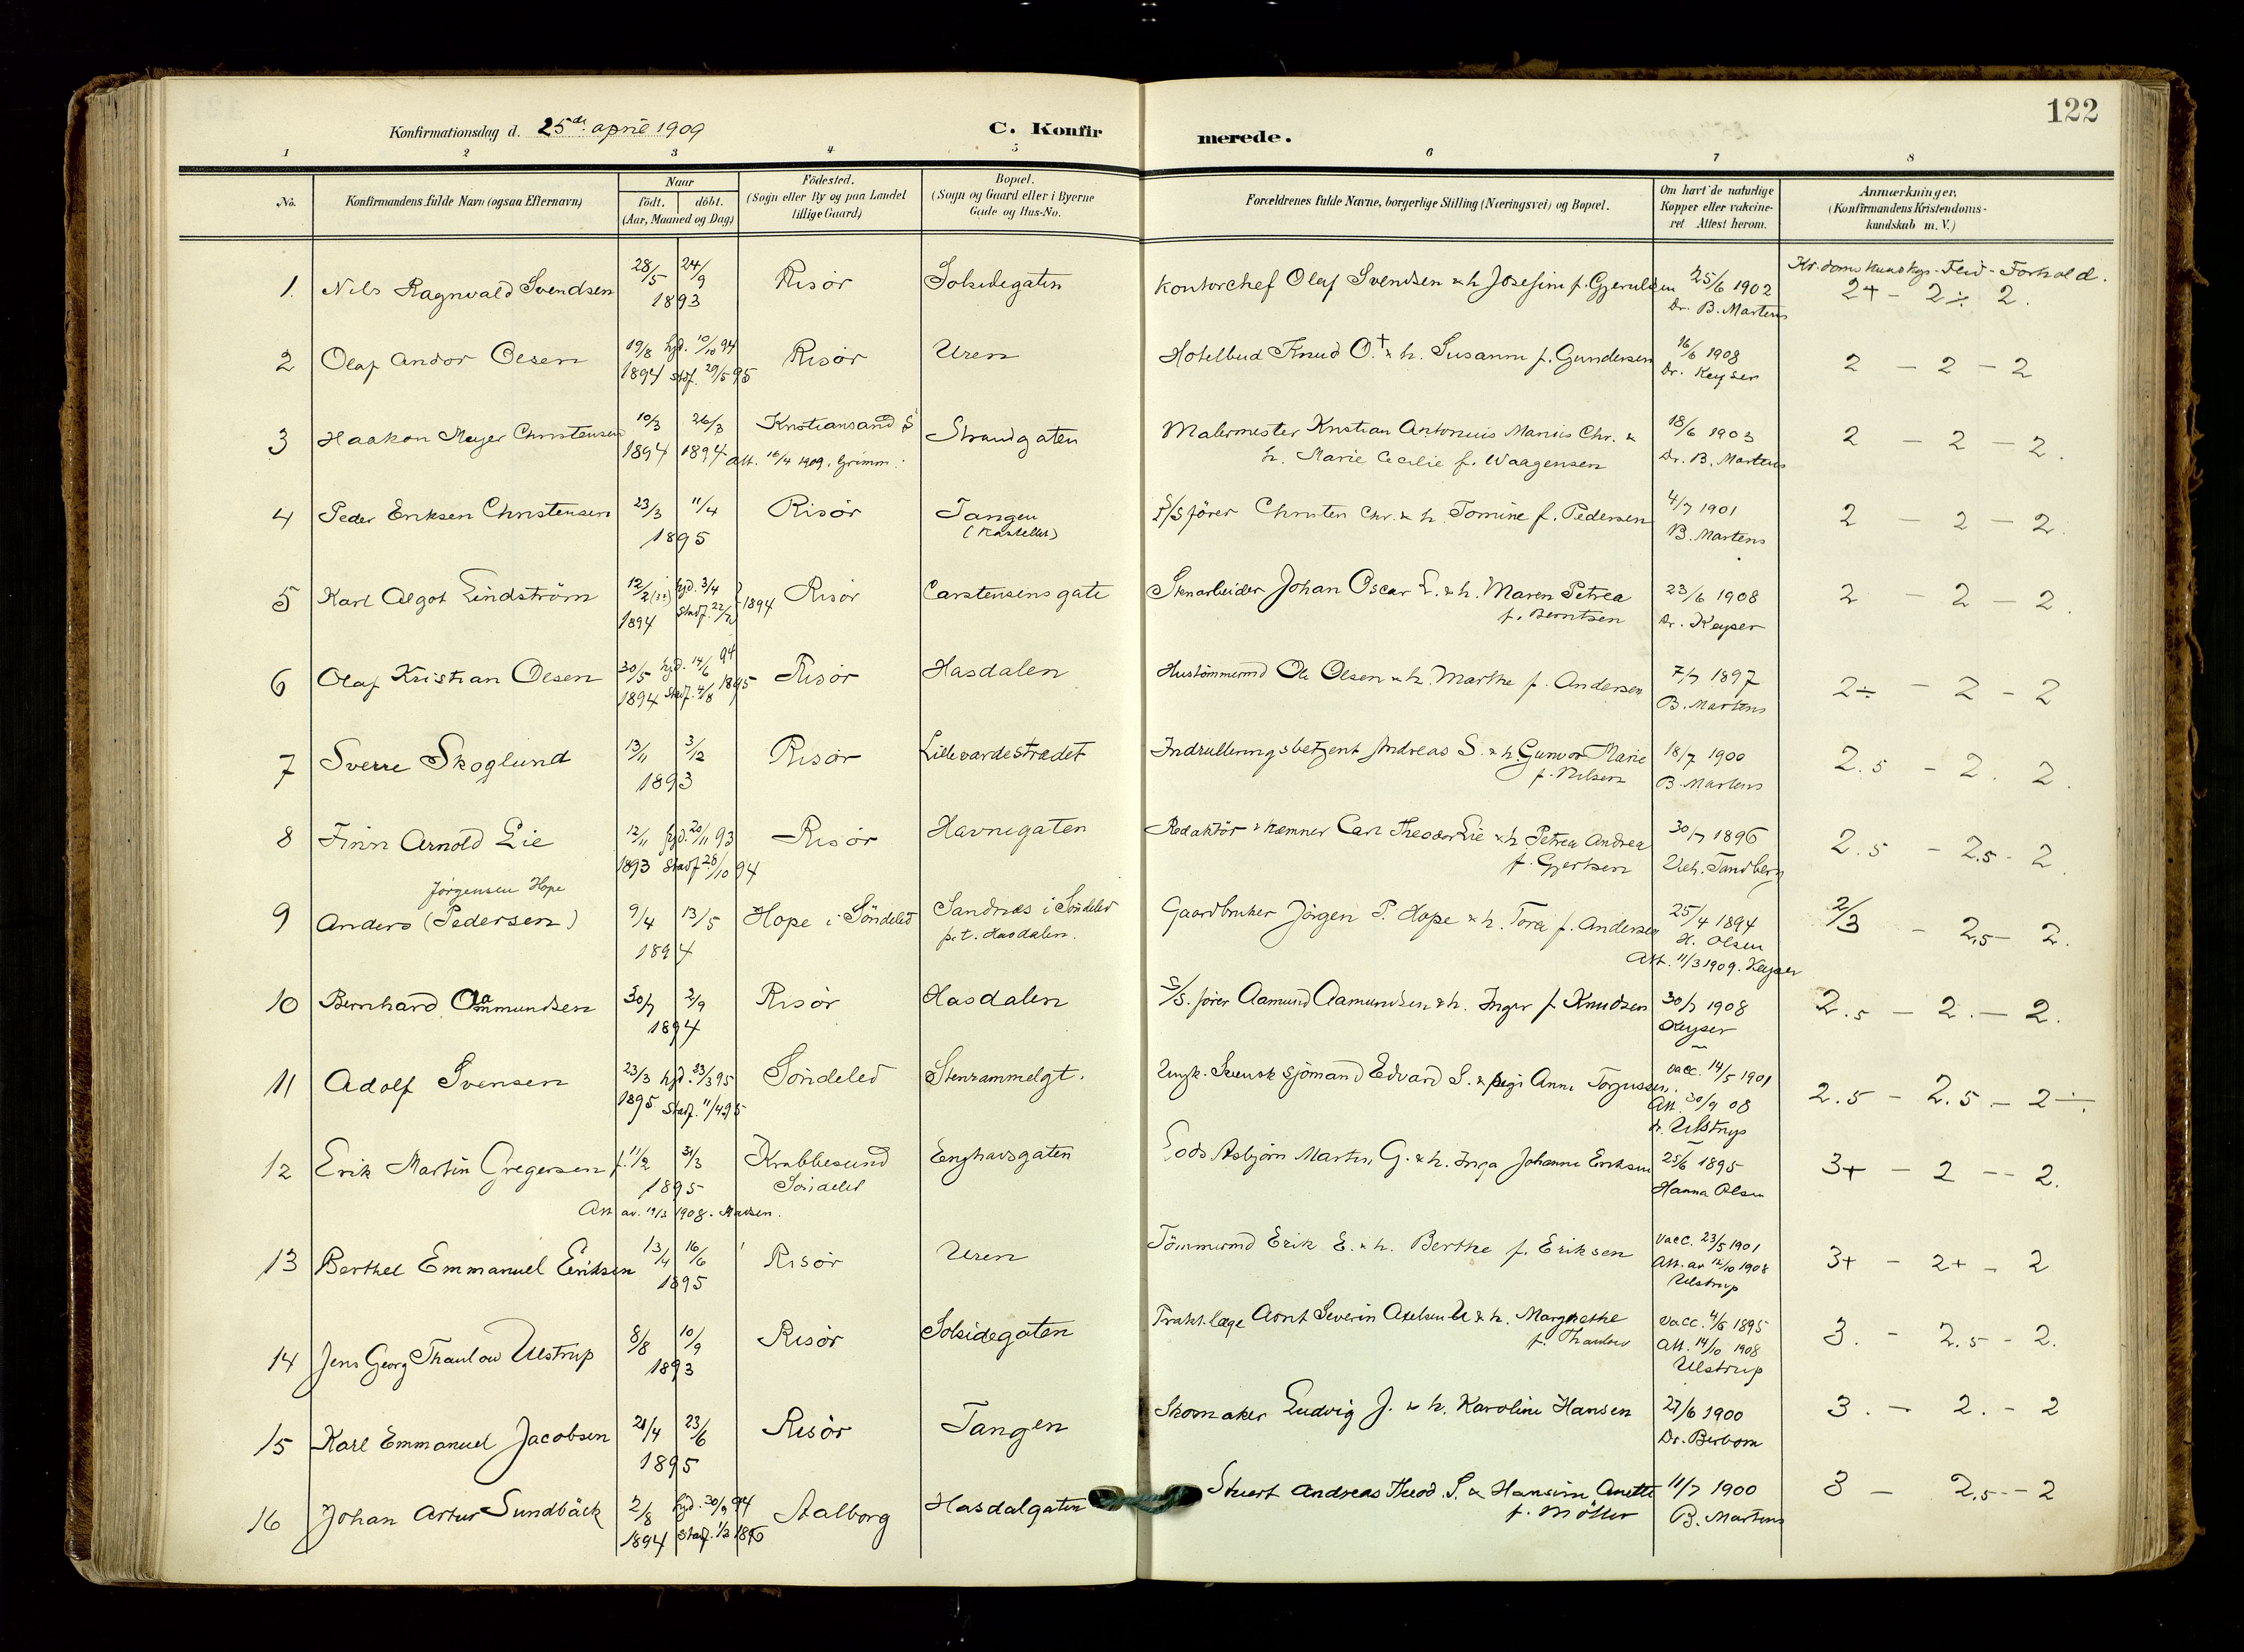 122
Konfirmationsdag d. 25de april 1909
C. Konfirmerede.
1 2 3 4 5 6 7 8
No.
Konfirmandens fulde Navn (ogsaa Efternavn)
Naar
födt. döbt.
(Aar, Maaned og Dag)
Födested.
(Sogn eller By og paa Landet
tillige Gaard)
Bopæl.
(Sogn og Gaard eller i Byerne
Gade og Hus-No.
Forældrenes fulde Navne, borgerlige Stilling (Næringsvei) og Bopæl.
Om havt de naturlige
Kopper eller vakcine-
ret Attest herom.
Anmærkninger.
(Konfirmandens Kristendoms-
kundskab m. V.)
Kr.doms kundskp - Flid - Forhold.
1. Nils Ragnvald Svendsen 28/5 24/9 Risör Solsidegaten Kontorchef Olaf Svendsen & h. Josefine f. Gjerulsen 25/6 1902 2+ - 2÷ 2.
1893 Dr. B. Martens
2 Olaf Andor Olsen 19/8 hjd. 10/10 94 Risör Uren Hotelbud Knud O.† & h. Susanne f. Gundersen 16/6 1908 2 - 2 - 2
1894 stadf. 29/5 95 Dr. Keyser
3 Haakon Meyer Christensen 10/3 26/3 Kristiansand S Strandgaten Malermester Kristian Antonius Marius Chr. & 18/6 1903 2 - 2 - 2.
1894 1894 Att. 16/4 1909. Grimm. h. Marie Cecilie f. Waagensen Dr. B. Martens
4 Peder Eriksen Christensen 23/3 11/4 Risör Tangen S/S förer Christen Chr. & h. Tomine f. Pedersen 4/7 1901 2 - 2 - 2.
1895 (Kastellet) B. Martens
5 Karl Algot Lindström 12/2 hjd. 3/4 Risör Carstensens gate Stenarbeider Johan Oscar L. & h. Maren Petrea 23/6 1908 2 - 2 - 2.
1894 Stadf. 22/ 1894 f. Berntsen Dr. Keyser
6 Olaf Kristian Olsen 30/5 hjd. 14/6 94 Risör Hasdalen Hustömmermd Ole Olsen & h. Marthe f. Andersen 7/7 1897 2÷ - 2 - 2
1894 Stadf. 4/8 1895 B. Martens
7 Sverre Skoglund 13/11 3/12 Risör Lillevardestrædet Indrulleringsbetjent Andreas S. & h. Gunvor Marie 18/7 1900 2.5 - 2. 2.
1893 f. Nilsen B. Martens
8 Finn Arnold Lie 12/11 hjd. 20/11 93 Risör Havnegaten Redaktör & kæmner Carl Theodor Lie & h. Petrea Andrea 30/7 1896 2.5 - 2.5 - 2
1893 Stadf 28/10 94 f. Gjertsen Vilh. Tandberg
Jörgensen Hope
9 Anders (Pedersen) 9/4 13/5 Hope i Söndeled Sandnæs i Söndeled Gaardbruker Jörgen P. Hope & h. Tora f. Andersen 25/4 1894 2/3 - 2.5 - 2.
1894 p.t. Hasdalen. H. Olsen
Att. 11/3 1909. Keyser
10 Bernhard Aamundsen 30/7 2/9 Risör Hasdalen S/S. förer Aamund Aamundsen & h. Inger f Knudsen 30/7 1908 2.5 - 2. - 2.
1894 Keyser
11 Adolf Svensen 23/3 hjd. 23/3 95 Söndeled Stenrammelgt. Ungk. Svensk sjömand Edvard S. & pige Anne Torjussen. vacc. 14/5 1901 2.5 - 2.5 - 2÷
1895 Stadf. 11/4 95 Att. 30/9 08
dr. Ulstrup
12 Erik Martin Gregersen f. 11/2 31/3 Krabbesund Enghavsgaten Lods Asbjörn Martin G. & h. Inga Johanne Eriksen 25/6 1895 3+ - 2 - 2.
1895 Söndeled Hanna Olsen
Att av. 19/3 1908. Madsen.
13 Berthel Emmanuel Eriksen 13/4 16/6 Risör Uren Tömmermd Erik E. & h. Berthe f. Eriksen vacc. 23/5 1901 3+ - 2+ - 2
1895 Att. av 12/10 1908
Ulstrup
14 Jens Georg Thaulow Ulstrup 8/8 10/9 Risör Solsidegaten Prakt. læge Arnt Severin Axelsen U & h. Margrethe vacc. 4/6 1895 3. - 2.5 - 2.
1893 f. Thaulow Att. 14/10 1908
Ulstrup
15 Karl Emmanuel Jacobsen 21/4 23/6 Risör Tangen Skomaker Ludvig J. & h. Karoline Hansen 27/6 1900 3. - 2. - 2
1895 Dr. Berbom
16 Johan Artur Sundbäck 2/8 hjd. 30/9 94 Aalborg Hasdalgaten Stuert Andreas Theod. S. & Hansine Anette 11/7 1900 3 - 2.5 - 2
1894 Stadf. 1/3 1896 f. Möller B. Martens